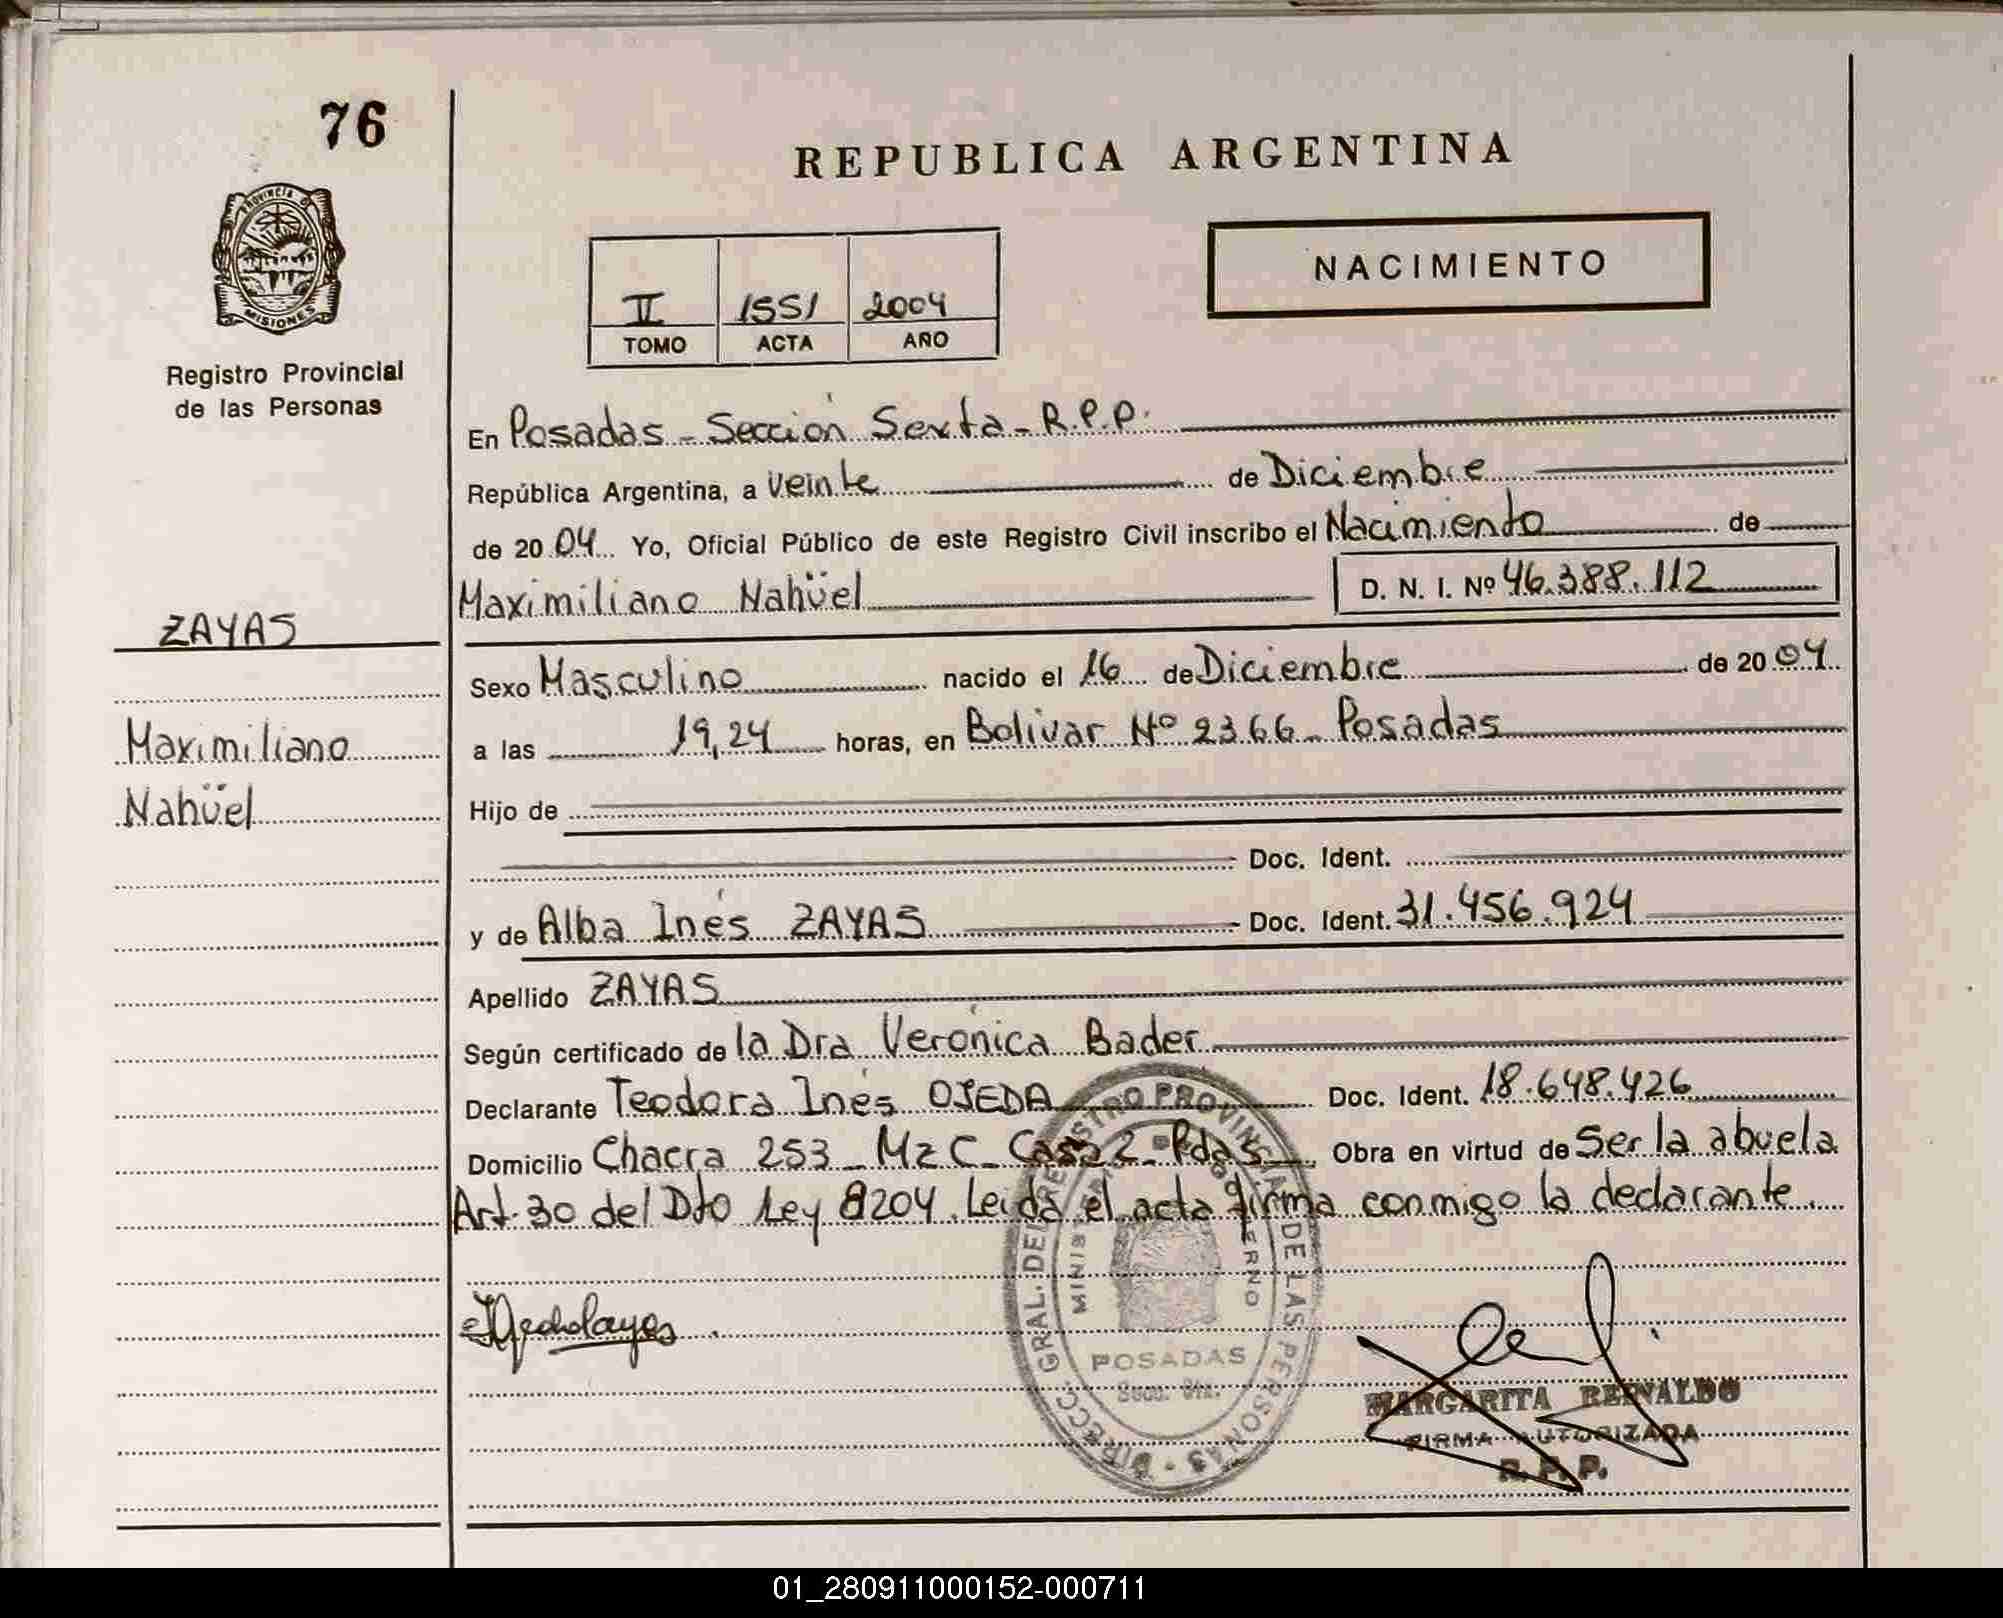 76
REPUBLICA ARGENTINA
PROVINCIA DE
MISIONES
Registro Provincial
de las Personas
II 1551 2004
TOMO ACTA AÑO
NACIMIENTO
En Posadas - Sección Sexta - R.P.P.
República Argentina, a veinte de Diciembre
de 2004 Yo, Oficial Público de este Registro Civil inscribo el Nacimiento de
Maximiliano Nahüel D. N. I. Nº 46.388.112
ZAYAS
Maximiliano
Nahüel
Sexo Masculino nacido el 16 de Diciembre de 2004
a las 19,24 horas, en Bolívar Nº 2366 - Posadas
Hijo de
Doc. Ident.
y de Alba Inés ZAYAS Doc. Ident. 31.456.924
Apellido ZAYAS
Según certificado de la Dra Verónica Bader
Declarante Teodora Inés OJEDA Doc. Ident. 18.648.426
Domicilio Chacra 253 - Mz C - Casa 2 - Pdas Obra en virtud de Ser la abuela
Art. 30 del Dto Ley 8204. Leída el acta firma conmigo la declarante.
DIRECC. GRAL. DEL REGISTRO PROVINCIAL DE LAS PERSONAS
POSADAS
Secc. 6ta.
MARGARITA REINALDO
FIRMA AUTORIZADA
R. P. P.
01_280911000152-000711